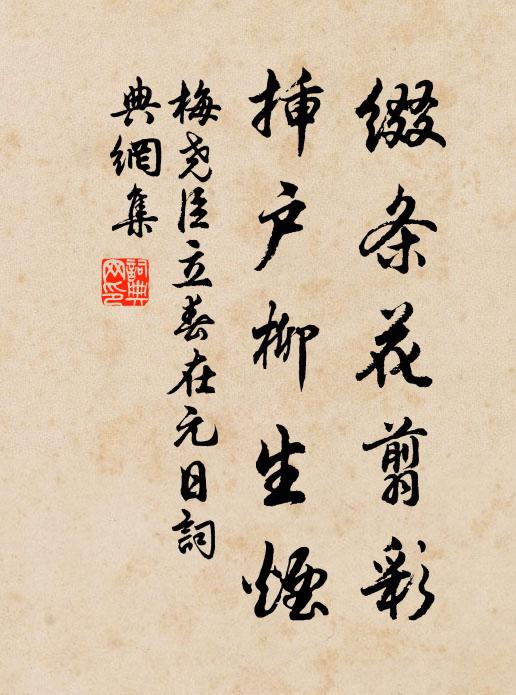 缀条花翦彩
插户柳生烟
梅尧臣立春在元日詞
典網集
詞典
网印